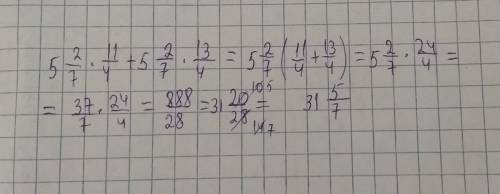 5 2/7 · 11/4 + 5 2/7 · 13/4 = 5 2/7 (11/4 + 13/4) = 5 2/7 · 24/4 =
= 37/7 · 24/4 = 888/28 = 31 20/28 10 5 / 14 7 = 31 5/7